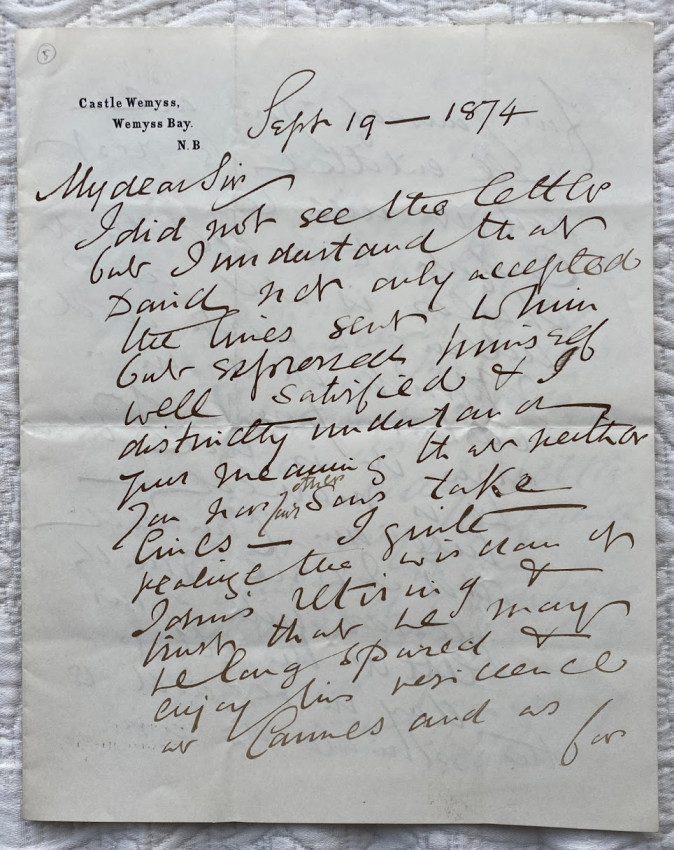 5
Castle Wemyss,
Wemyss Bay.
N.B
Sept 19 — 1874
My dear Sir
I did not see the letter
but I understand that
David not only accepted
the lines sent to him
but expressed himself
well satisfied & I
distinctly understand
your meaning that neither
you nor your other sons take
lines — I quite
realize the wisdom of
John's retiring &
trust that he may
be long spared &
enjoy his residence
at Cannes and as
for